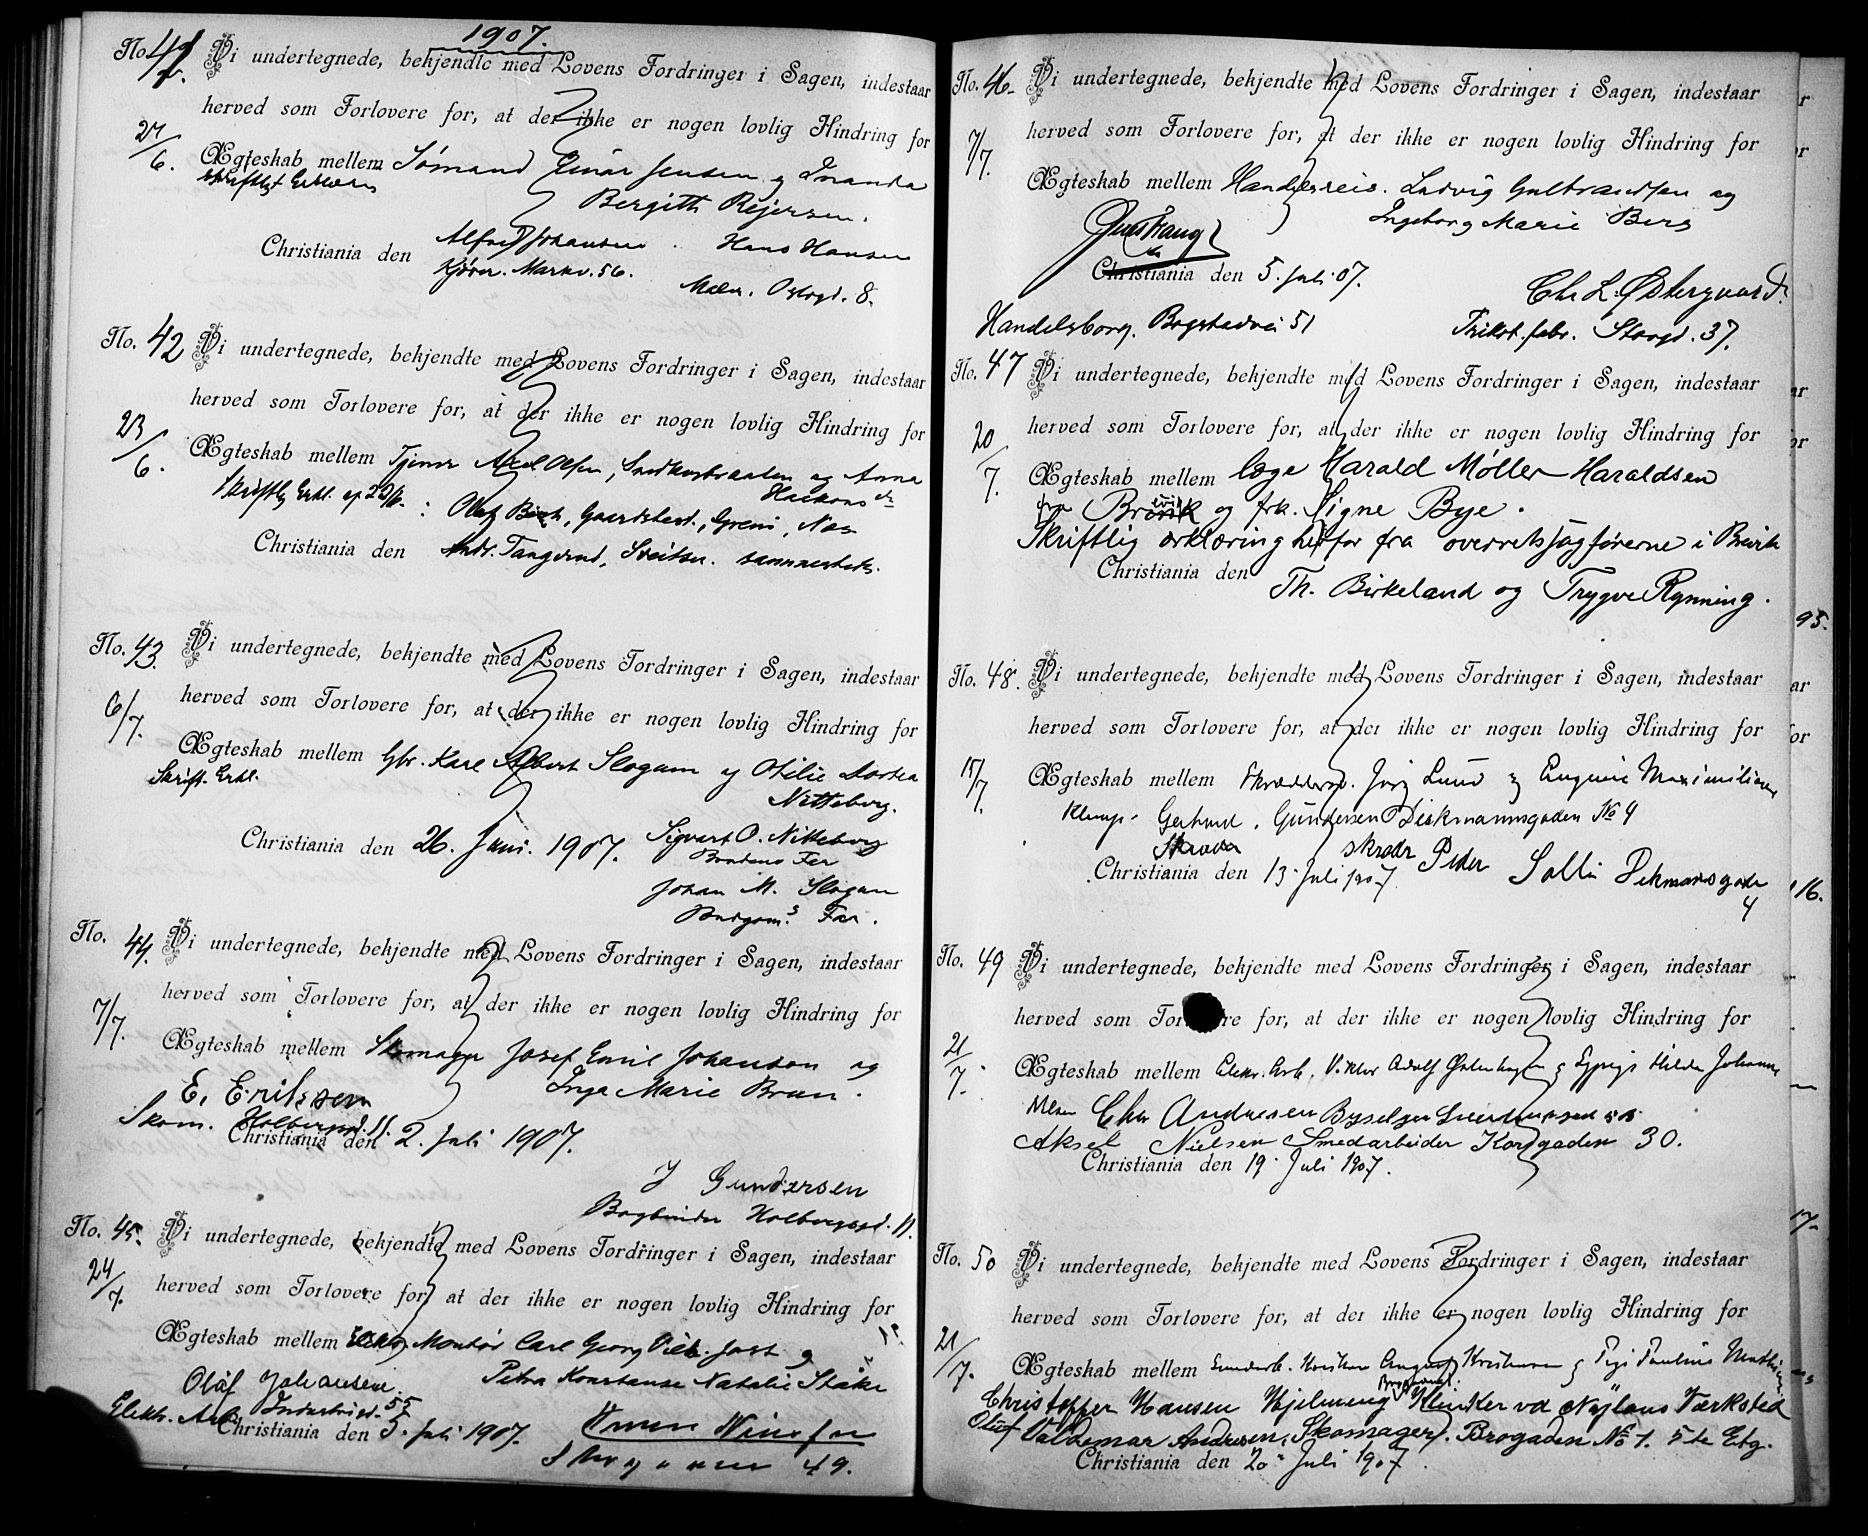 1907.
No. 41 Vi undertegnede, bekjendte med Lovens Fordringer i Sagen, indestaar
herved som Forlovere for, at der ikke er nogen lovlig Hindring for
27/6. Ægteskab mellem Sømand Einar Jensen og Inanda
skriftligt Erklæring Bergitth Rejersen.
Christiania den Alfred Johansen. Hans Hansen
Kjører. Markv. 56. Maler. Oslogd. 8.
No. 42 Vi undertegnede, bekjendte med Lovens Fordringer i Sagen, indestaar
herved som Forlovere for, at der ikke er nogen lovlig Hindring for
23/6. Ægteskab mellem Tjener Axel Olsen, og Anna
Haakonsdr
Skriftlig Erkl. af 22/6. : Olaf Gaardsbest., Næs
Christiania den Andr. Tangerud, Sveitser. sammesteds.
No. 43. Vi undertegnede, bekjendte med Lovens Fordringer i Sagen, indestaar
herved som Forlovere for, at der ikke er nogen lovlig Hindring for
6/7. Ægteskab mellem Gbr. Karl Albert Slogum og Otilie Dortea
Skrift. Erkl. Nitteberg.
Christiania den 26. Juni. 1907. Sigvart O. Nitteberg
Brudens Far
Johan M. Slogum
Brudgoms Far.
No. 44. Vi undertegnede, bekjendte med Lovens Fordringer i Sagen, indestaar
herved som Forlovere for, at der ikke er nogen lovlig Hindring for
7/7. Ægteskab mellem Skomager Josef Emil Johansen og
E. Eriksen Inga Marie Brun.
Skom. Holbergsgd. 11.
Christiania den 2. Juli 1907.
J Gundersen
Bogbinder Holbergsgd. 11.
No. 45. Vi undertegnede, bekjendte med Lovens Fordringer i Sagen, indestaar
herved som Forlovere for, at der ikke er nogen lovlig Hindring for
24/7. Ægteskab mellem Elektr. Montør Carl Georg Vilh. Jost og
Olaf Johansen. Petra Konstanse Natalie Ståke
Elektr. Arb. Industrigd. 55
Christiania den 5. Juli 1907.
49.
No. 46. Vi undertegnede, bekjendte med Lovens Fordringer i Sagen, indestaar
herved som Forlovere for, at der ikke er nogen lovlig Hindring for
7/7. Ægteskab mellem Handelsreis. Ludvig Gulbrandsen og
Ingeborg Marie Berg
Christiania den 5. Juli 07. Chr L. Østergaard.
Handelsborg. Bogstadvei 51 Trikot. fabr. Storgd. 37.
No. 47 Vi undertegnede, bekjendte med Lovens Fordringer i Sagen, indestaar
herved som Forlovere for, at der ikke er nogen lovlig Hindring for
20/7. Ægteskab mellem læge Harald Møller Haraldsen
fra Brevik og frk. Signe Bye.
Skriftlig erklæring herfor fra overretssagførerne i Brevik
Christiania den Th. Birkeland og Trygve Rynning.
No. 48. Vi undertegnede, bekjendte med Lovens Fordringer i Sagen, indestaar
herved som Forlovere for, at der ikke er nogen lovlig Hindring for
15/7. Ægteskab mellem Skræddersv. Jørg Lund og Eugenie Maximiliane
Klump. Gerhard. Gundersen Dirkmannsgaden No 4
Skræder skrædr Peder Solli Dikmansgade
Christiania den 13. Juli 1907. 4
No. 49 Vi undertegnede, bekjendte med Lovens Fordringer i Sagen, indestaar
herved som Forlovere for, at der ikke er nogen lovlig Hindring for
21/7. Ægteskab mellem Elektr. Arb. Viktor Adolf og Sypige Hilda Johanne
Chr Andresen
Aksel Nielsen Smedarbeider Korsgaden 30.
Christiania den 19. Juli 1907.
No. 50 Vi undertegnede, bekjendte med Lovens Fordringer i Sagen, indestaar
herved som Forlovere for, at der ikke er nogen lovlig Hindring for
21/7. Ægteskab mellem August Kristiansen og Pige Pauline
Christopher Hansen Hjelmeng Klinker vd Nylans Værksted
Oluf Valdemar Andresen, Skomager. Brogaden No 1. 5te Etg.
Christiania den 20. Juli 1907.
95.
16.
17.